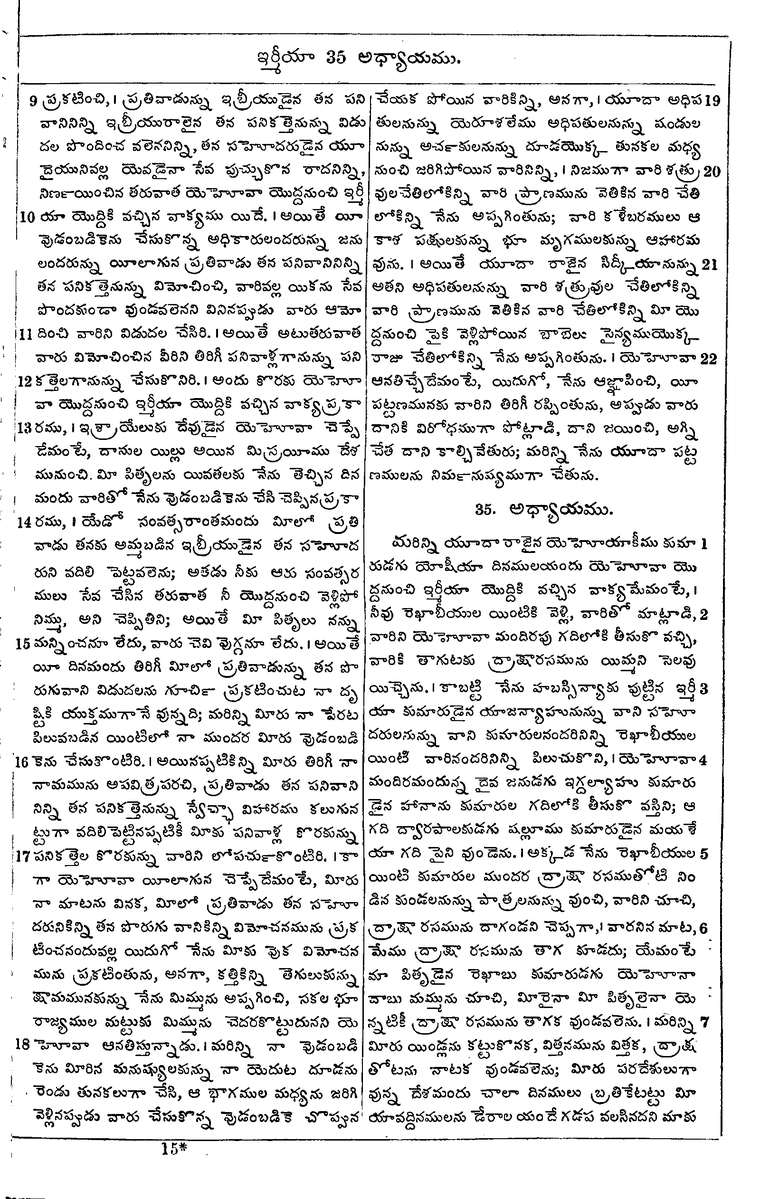 ఇర్మీయా 35 అధ్యాయము.
9 ప్రకటించి, । ప్రతివాడున్ను ఇబ్రీయుడైన తన పని
వానినిన్ని ఇబ్రీయురాలైన తన పనికత్తెనున్ను విడు
దల పొందించ వలెననిన్ని, తన సహెూదరుడైన యూ
దైయునివల్ల యెవడైనా సేవ పుచ్చుకొన రాదనిన్ని,
నిర్ణయించిన తరువాత యెహెూవా యొద్దనుంచి ఇర్మీ
10 యా యొద్దికి వచ్చిన వాక్యము యిదే. । అయితే యీ
వుడంబడికెను చేసుకొన్న అధికారులందరున్ను జను
లందరున్ను యీలాగున ప్రతివాడు తన పనివానినిన్ని
తన పనికత్తెనున్ను విమోచించి, వారివల్ల యికను సేవ
పొందకుండా వుండవలెనని వినినప్పుడు వారు ఆమో
11 దించి వారిని విడుదల చేసిరి. । అయితే అటుతరువాత
వారు విమోచించిన వీరిని తిరిగీ పనివాళ్లగానున్ను పని
12 కత్తెలగానున్ను చేసుకొనిరి. । అందు కొరకు యెహెూ
వా యొద్దనుంచి ఇర్మీయా యొద్దికి వచ్చిన వాక్యప్రకా
13 రము, । ఇశ్రాయేలుకు దేవుడైన యెహెూవా చెప్పే
దేమంటే, దాసుల యిల్లు అయిన మిస్రయీము దేశ
మునుంచి. మీ పితృలను యివతలకు నేను తెచ్చిన దిన
మందు వారితో నేను వుడంబడికెను చేసి చెప్పిన ప్రకా
14 రము, । యేడో సంవత్సరాంతమందు మీలో ప్రతి
వాడు తనకు అమ్మబడిన ఇబ్రీయుడైన తన సహెూద
రుని వదిలి పెట్టవలెను; అతడు నీకు ఆరు సంవత్సర
ములు సేవ చేసిన తరువాత నీ యొద్దనుంచి వెళ్లిపో
నిమ్ము, అని చెప్పితిని; అయితే మీ పితృలు నన్ను
15 మన్నించనూ లేదు, వారు చెవి వుగ్గనూ లేదు. । అయితే
యీ దినమందు తిరిగీ మీలో ప్రతివాడున్ను తన పొ
రుగువాని విడుదలను గూర్చి ప్రకటించుట నా దృ
ష్టికి యుక్తముగానే వున్నది; మరిన్ని మీరు నా పేరట
పిలువబడిన యింటిలో నా ముందర మీరు వుడంబడి
16 కెను చేసుకొంటిరి. । అయినప్పటికిన్ని మీరు తిరిగీ నా
నామమును అపవిత్రపరచి, ప్రతివాడు తన పనివాని
నిన్ని తన పనికత్తెనున్ను స్వేచ్ఛా విహారము కలుగున
ట్టుగా వదిలిపెట్టినప్పటికీ మీకు పనివాళ్ల కొరకున్ను
17 పనికత్తెల కొరకున్ను వారిని లోపర్చుకొంటిరి. । కా
గా యెహెూవా యీలాగున చెప్పేదేమంటే, మీరు
నా మాటను వినక, మీలో ప్రతివాడు తన సహెూ
దరునికిన్ని తన పొరుగు వానికిన్ని విమోచనమును ప్రక
టించనందువల్ల యిదుగో నేను మీకు వుక విమోచన
మును ప్రకటింతును, అనగా, కత్తికిన్ని తెగులుకున్ను
క్షామమునకున్ను నేను మిమ్మును అప్పగించి, సకల భూ
రాజ్యముల మట్టుకు మిమ్మును చెదరకొట్టుదునని యె
18 హెూవా ఆనతిస్తున్నాడు. । మరిన్ని నా వుడంబడి
కెను మీరిన మనుష్యులకున్ను నా యెదుట దూడను
రెండు తునకలుగా చేసి, ఆ భాగముల మధ్యను జరిగి
వెళ్లినప్పుడు వారు చేసుకొన్న వుడంబడికె చొప్పున
చేయక పోయిన వారికిన్ని, అనగా, । యూదా అధిప 19
తులనున్ను యెరూశలేము అధిపతులనున్ను షండుల
నున్ను అర్చకులనున్ను దూడయొక్క తునకల మధ్య
నుంచి జరిగిపోయిన వారినిన్ని, । నిజముగా వారి శత్రు 20
వులచేతిలోకిన్ని వారి ప్రాణమును వెతికిన వారి చేతి
లోకిన్ని నేను అప్పగింతును; వారి కళేబరములు ఆ
కాశ పక్షులకున్ను భూ మృగములకున్ను ఆహారమ
వును. । అయితే యూదా రాజైన సిద్కీయానున్ను 21
అతని అధిపతులనున్ను వారి శత్రువుల చేతిలోకిన్ని
వారి ప్రాణమును వెతికిన వారి చేతిలోకిన్ని మీ యొ
ద్దనుంచి పైకి వెళ్లిపోయిన బాబెలు సైన్యముయొక్క
రాజు చేతిలోకిన్ని నేను అప్పగింతును. । యెహెూవా 22
ఆనతిచ్చేదేమంటే, యిదుగో, నేను ఆజ్ఞాపించి, యీ
పట్టణమునకు వారిని తిరిగీ రప్పింతును, అప్పుడు వారు
దానికి విరోధముగా పోట్లాడి, దాని జయించి, అగ్ని
చేత దాని కాల్చివేతురు; మరిన్ని నేను యూదా పట్ట
ణములను నిర్మనుష్యముగా చేతును.
35. అధ్యాయము.
మరిన్ని యూదా రాజైన యెహెూయాకీము కుమా 1
రుడగు యోషీయా దినములయందు యెహెూవా యొ
ద్దనుంచి ఇర్మీయా యొద్దికి వచ్చిన వాక్యమేమంటే, ।
నీవు రెఖాబీయుల యింటికి వెళ్లి, వారితో మాట్లాడి, 2
వారిని యెహెూవా మందిరపు గదిలోకి తీసుకొ వచ్చి,
వారికి తాగుటకు ద్రాక్షారసమును యిమ్మని సెలవు
యిచ్చెను. । కాబట్టి నేను హబస్సిన్యాకు పుట్టిన ఇర్మీ 3
యా కుమారుడైన యాజన్యాహునున్ను వాని సహెూ
దరులనున్ను వాని కుమారులనందరినిన్ని రెఖాబీయుల
యింటి వారినందరినిన్ని పిలుచుకొని, । యెహెూవా 4
మందిరమందున్న దైవ జనుడగు ఇగ్దల్యాహు కుమారు
డైన హానాను కుమారుల గదిలోకి తీసుకొ వస్తిని; ఆ
గది ద్వారపాలకుడగు షల్లూము కుమారుడైన మయశే
యా గది పైని వుండెను. । అక్కడ నేను రెఖాబీయుల 5
యింటి కుమారుల ముందర ద్రాక్షా రసముతోటి నిం
డిన కుండలనున్ను పాత్రలనున్ను వుంచి, వారిని చూచి,
ద్రాక్షా రసమును దాగండని చెప్పగా, । వారనిన మాట, 6
మేము ద్రాక్షా రసమును తాగ కూడదు; యేమంటే
మా పితృడైన రెఖాబు కుమారుడగు యెహెూనా
దాబు మమ్మును చూచి, మీరైనా మీ పితృలైనా యె
న్నటికీ ద్రాక్షా రసమును తాగక వుండవలెను. । మరిన్ని 7
మీరు యిండ్లను కట్టుకొనక, విత్తనమును విత్తక, ద్రాక్ష
తోటను నాటక వుండవలెను; మీరు పరదేశులుగా
వున్న దేశమందు చాలా దినములు బ్రతికేటట్టు మీ
యావద్దినములను డేరాల యందే గడప వలసినదని మాకు
15*